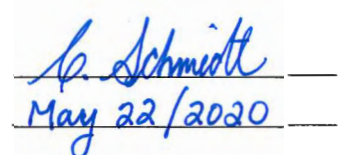 C. Schmidt
May 22/2020